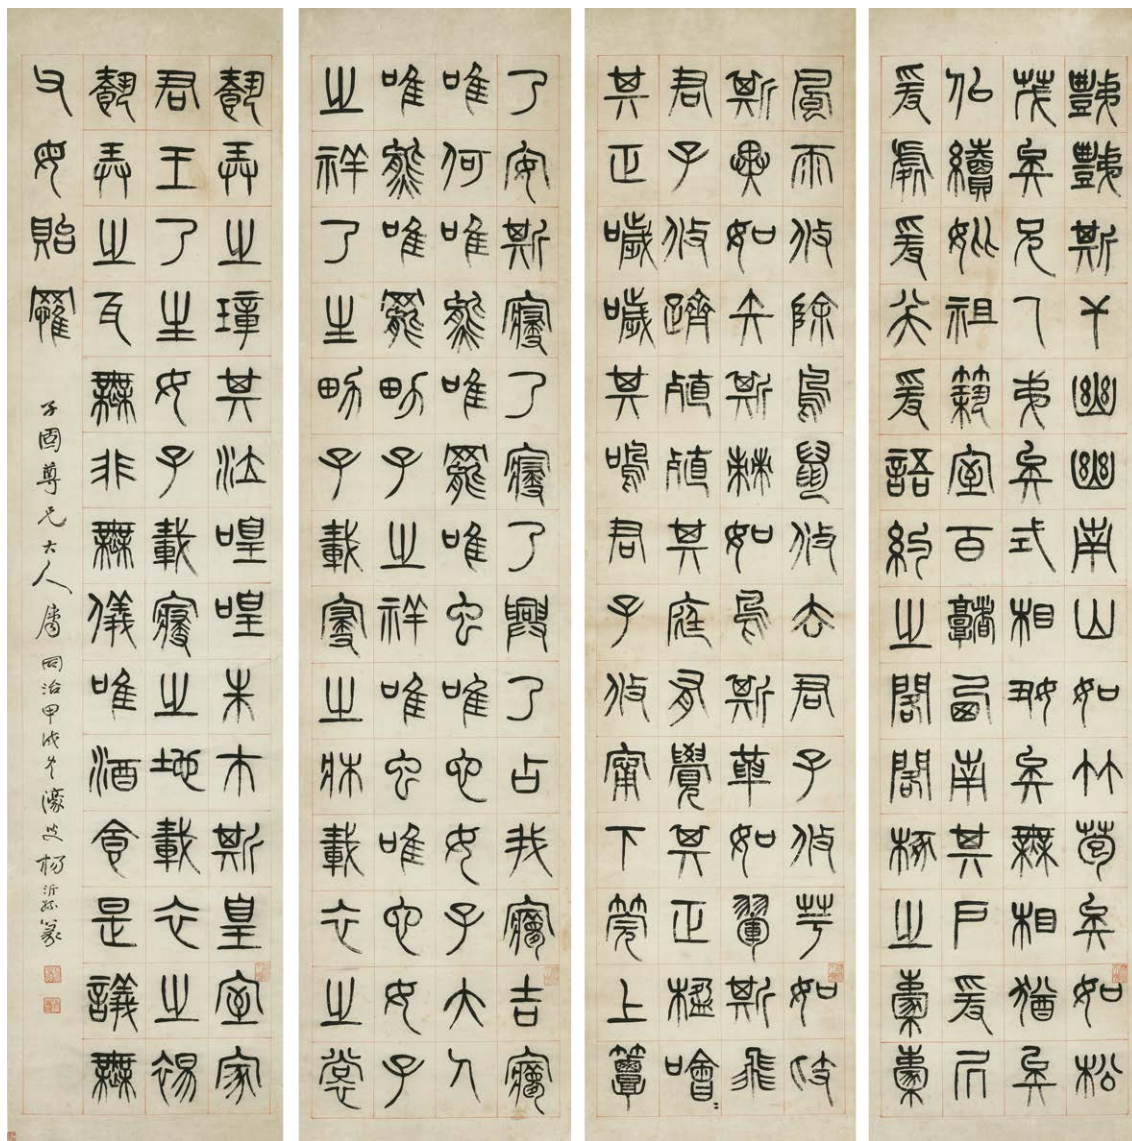 豑豑斯干幽幽南山如竹苞矣如松
茂矣兄及弟矣式相好矣無相猶矣
似續妣祖築室百堵西南其戶爰居
爰處爰笑爰語約之閣閣椓之橐橐
風雨攸除鳥鼠攸去君子攸芋如跂
斯翼如矢斯棘如鳥斯革如翬斯飛
君子攸躋殖殖其庭有覺其正楹噲
其正噦噦其鳴君子攸寧下莞上簟
乃安斯寢乃寢乃興乃占我夢吉夢
唯何唯熊唯羆唯虫唯它女子大人
唯熊唯羆男子之祥唯虫唯它女子
之祥乃生男子載寢之牀載衣之裳
載弄之璋其泣喤喤朱巿斯皇室家
君王乃生女子載寢之地載衣之裼
載弄之瓦無非無儀唯酒食是議無
父母貽罹
子酉尊兄大人屬 同治甲戌冬濠叟楊沂孫篆